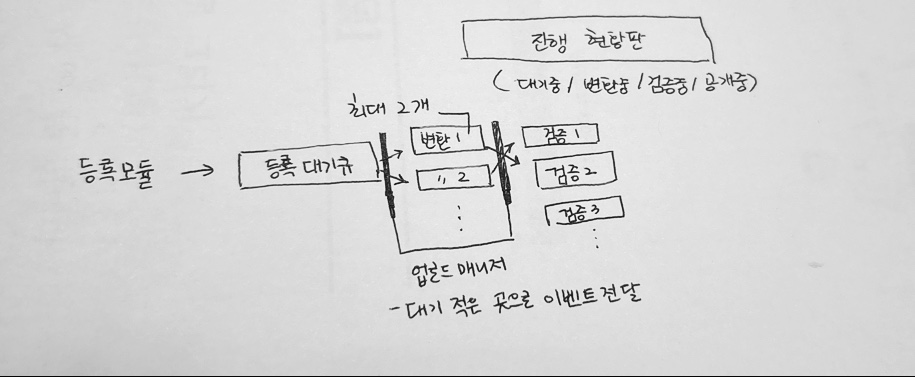 진행 현황판
(대기중/ 변환중/검증중/ 공개중)
최대 2개
등록모듈 → 등록 대기큐
변환 1
〃 2
⋮
검증 1
검증 2
검증 3
⋮
업로드 매니저
- 대기 적은 곳으로 이벤트 전달